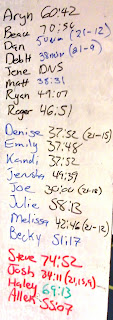 Aryn 60:42
Beau 70:56
Dan 50:00 (21-12)
Deb H 38:00 (21-9)
Jene DNS
Matt 38:31
Ryan 49:07
Roger 46:51
Denise 37:52 (21-15)
Emily 37:48
Kandi 37:52
Jensha 49:39
Joe 30:00 (21-18)
Julie 58:13
Melissa 42:46 (21-12)
Becky 51:17
Steve 74:52
Josh 34:11 (21,15,9)
Haley 69:13
Allen 55:07